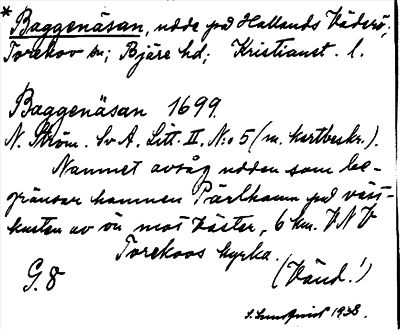 * Baggenäsan, udde på Hallands Väderö,
Torekov sn; Bjäre hd; Kristianst. l.
Baggenäsan 1699.
N. Ström. Sv A. Litt. II. N:o 5 (m. kartbeskr.).
Namnet avsåg udden som be-
gränsar hamnen Pärlhamn på väst-
kusten av ön mot Väster, 6 km. V N V
Torekovs kyrka.
G. 8
(Vänd!)
S. Lundquist 1938.